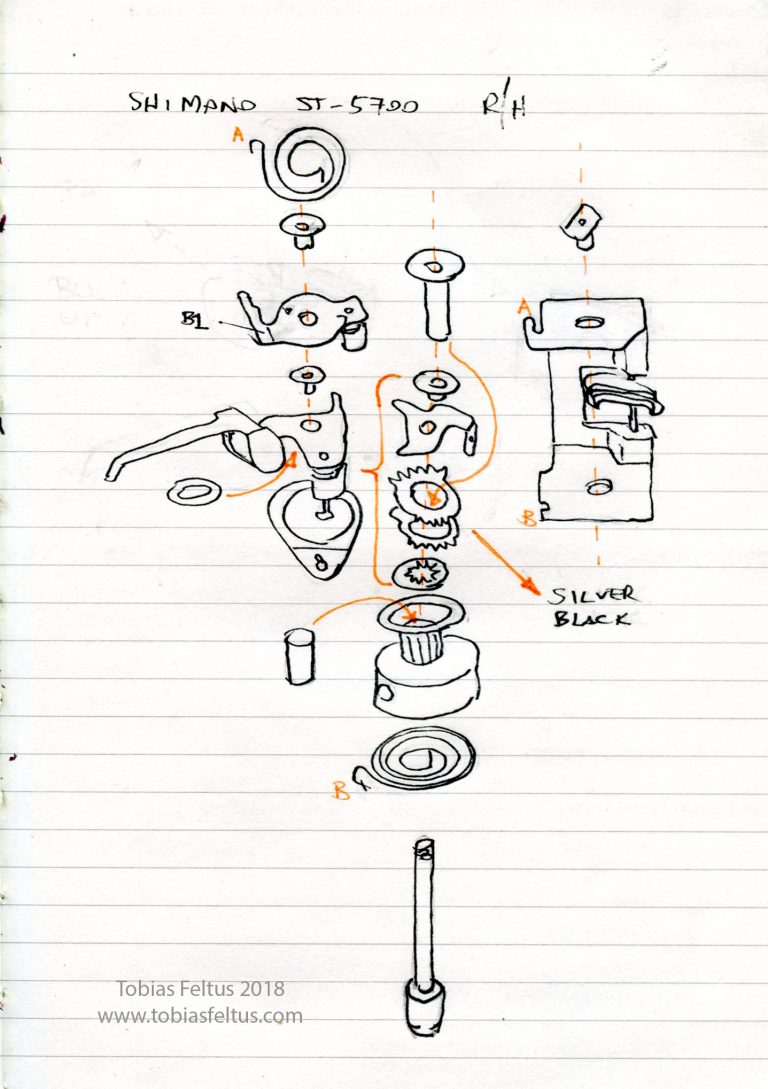 SHIMANO ST-5700 R/H
A
A
B1
B
SILVER
BLACK
B
Tobias Feltus 2018
www.tobiasfeltus.com